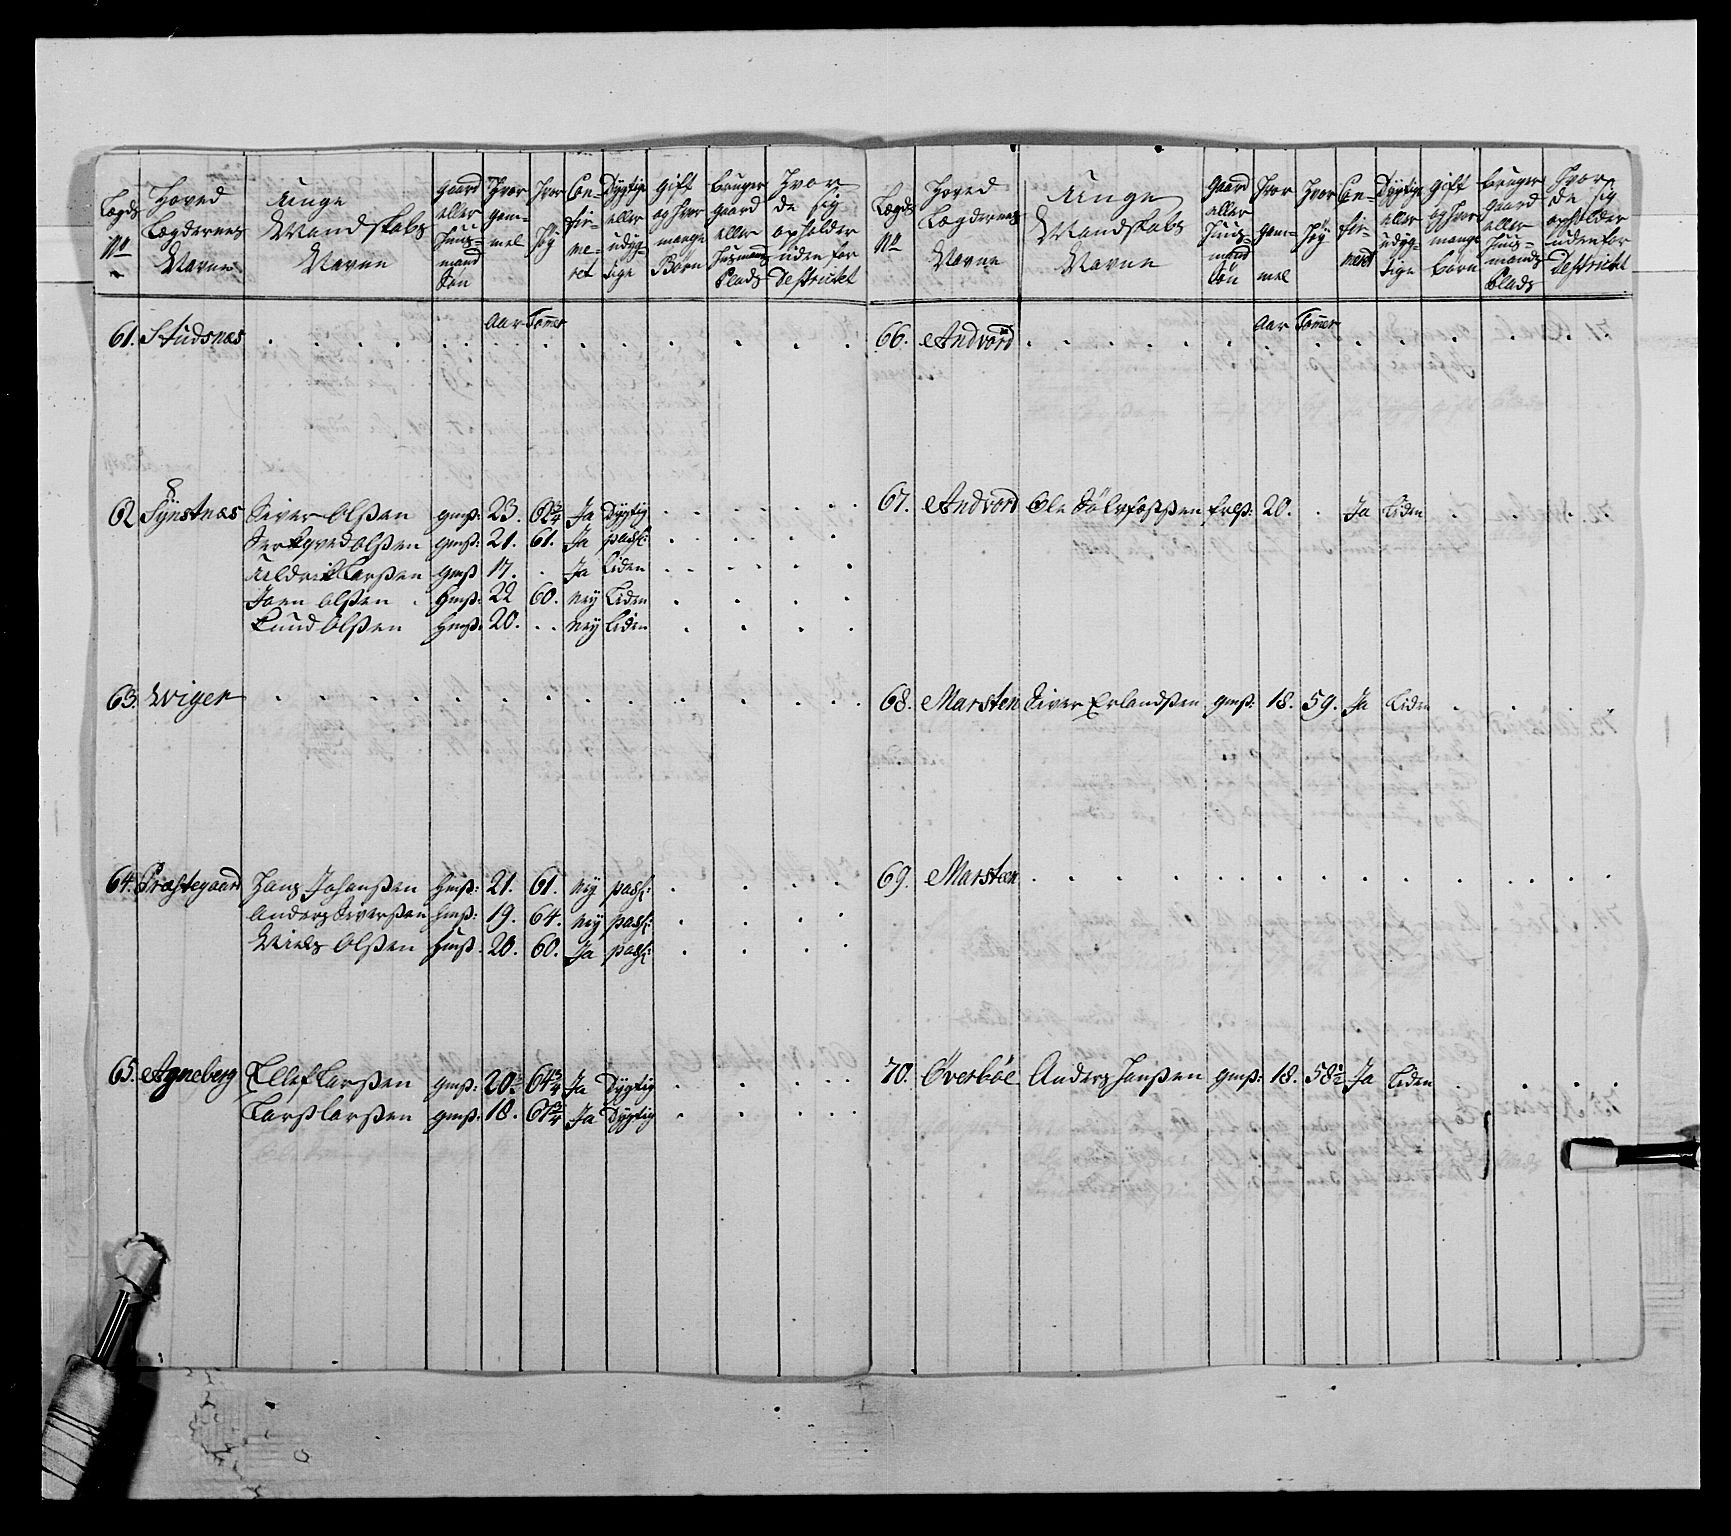 Lægds No | Hoved Lægdernes Navne | Unge Mandskabs Navne | gaard eller Huus=mand Søn | Hvor gam=mel | Hvor Høy | Con=fir=me=ret | Dygtige eller udyg=tige | gift og hvor mange Børn | bruger gaard eller Huusmands Plads | Hvor de sig opholder uden for Destrictet
Aar Tomer
61. Studsnæs
62 Synstnæs Siver Olßen gmß: 23. 62 3/4 Ja Dygtig
Olßen gmß: 21. 61. Ja paß:
Larßen gmß 17. . Ja Liden
Joen Olßen . Hmß: 22 60. Ney Liden
Knud Olßen Hmß: 20. . . Ney Liden
63. Wiger
64. Præstegaard Hans Johanßen Hmß: 21. 61. Ney paß:
Anders Siverßen Hmß: 19. 64. Ney paß:
Niels Olßen Hmß: 20. 60. Ja paß:
65. Agneberg Ellef Larßen gmß: 20. 64 3/4 Ja Dygtig
Lars Larßen gmß: 18. 61 3/4 Ja Dygtig
Lægds No | Hoved Lægdernes Navne | Unge Mandskabs Navne | gaard eller Huus=mand Søn | Hvor gam=mel | Hvor Høy | Con=fir=meret | Dygtige eller udyg=tige | gift og hvor mange børn | bruger gaard eller Huus=mands Plads | Hvor de sig opholder uden for Destrictet
Aar Tomer
66. Andvord
67. Andvord Ole 20. . Ja Liden
68. Marsten Siver Erlandßen gmß: 18. 59. Ja Liden
69. Marsten
70. Øverbøe Anders Hanßen gmß: 18. 58 1/2 Ja Liden